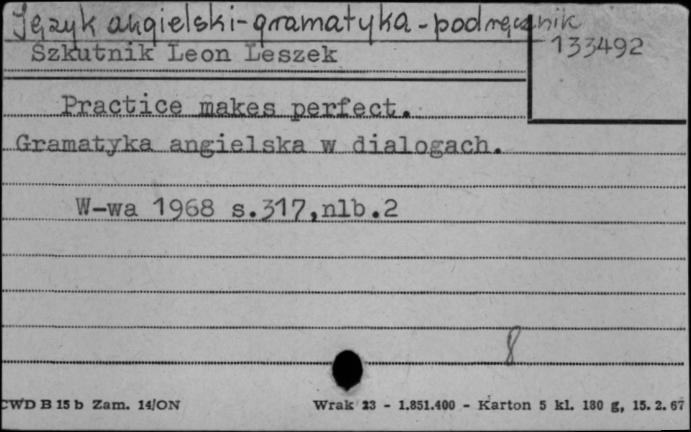 Język angielski-gramatyka-podręcznik
133492
Szkutnik Leon Leszek
Practice makes perfect.
Gramatyka angielska w dialogach.
W-wa 1968 s.317,nlb.2
8
CWD B 15 b Zam. 14/ON Wrak 23 - 1.851.400 - Karton 5 kl. 180 g, 15. 2. 67